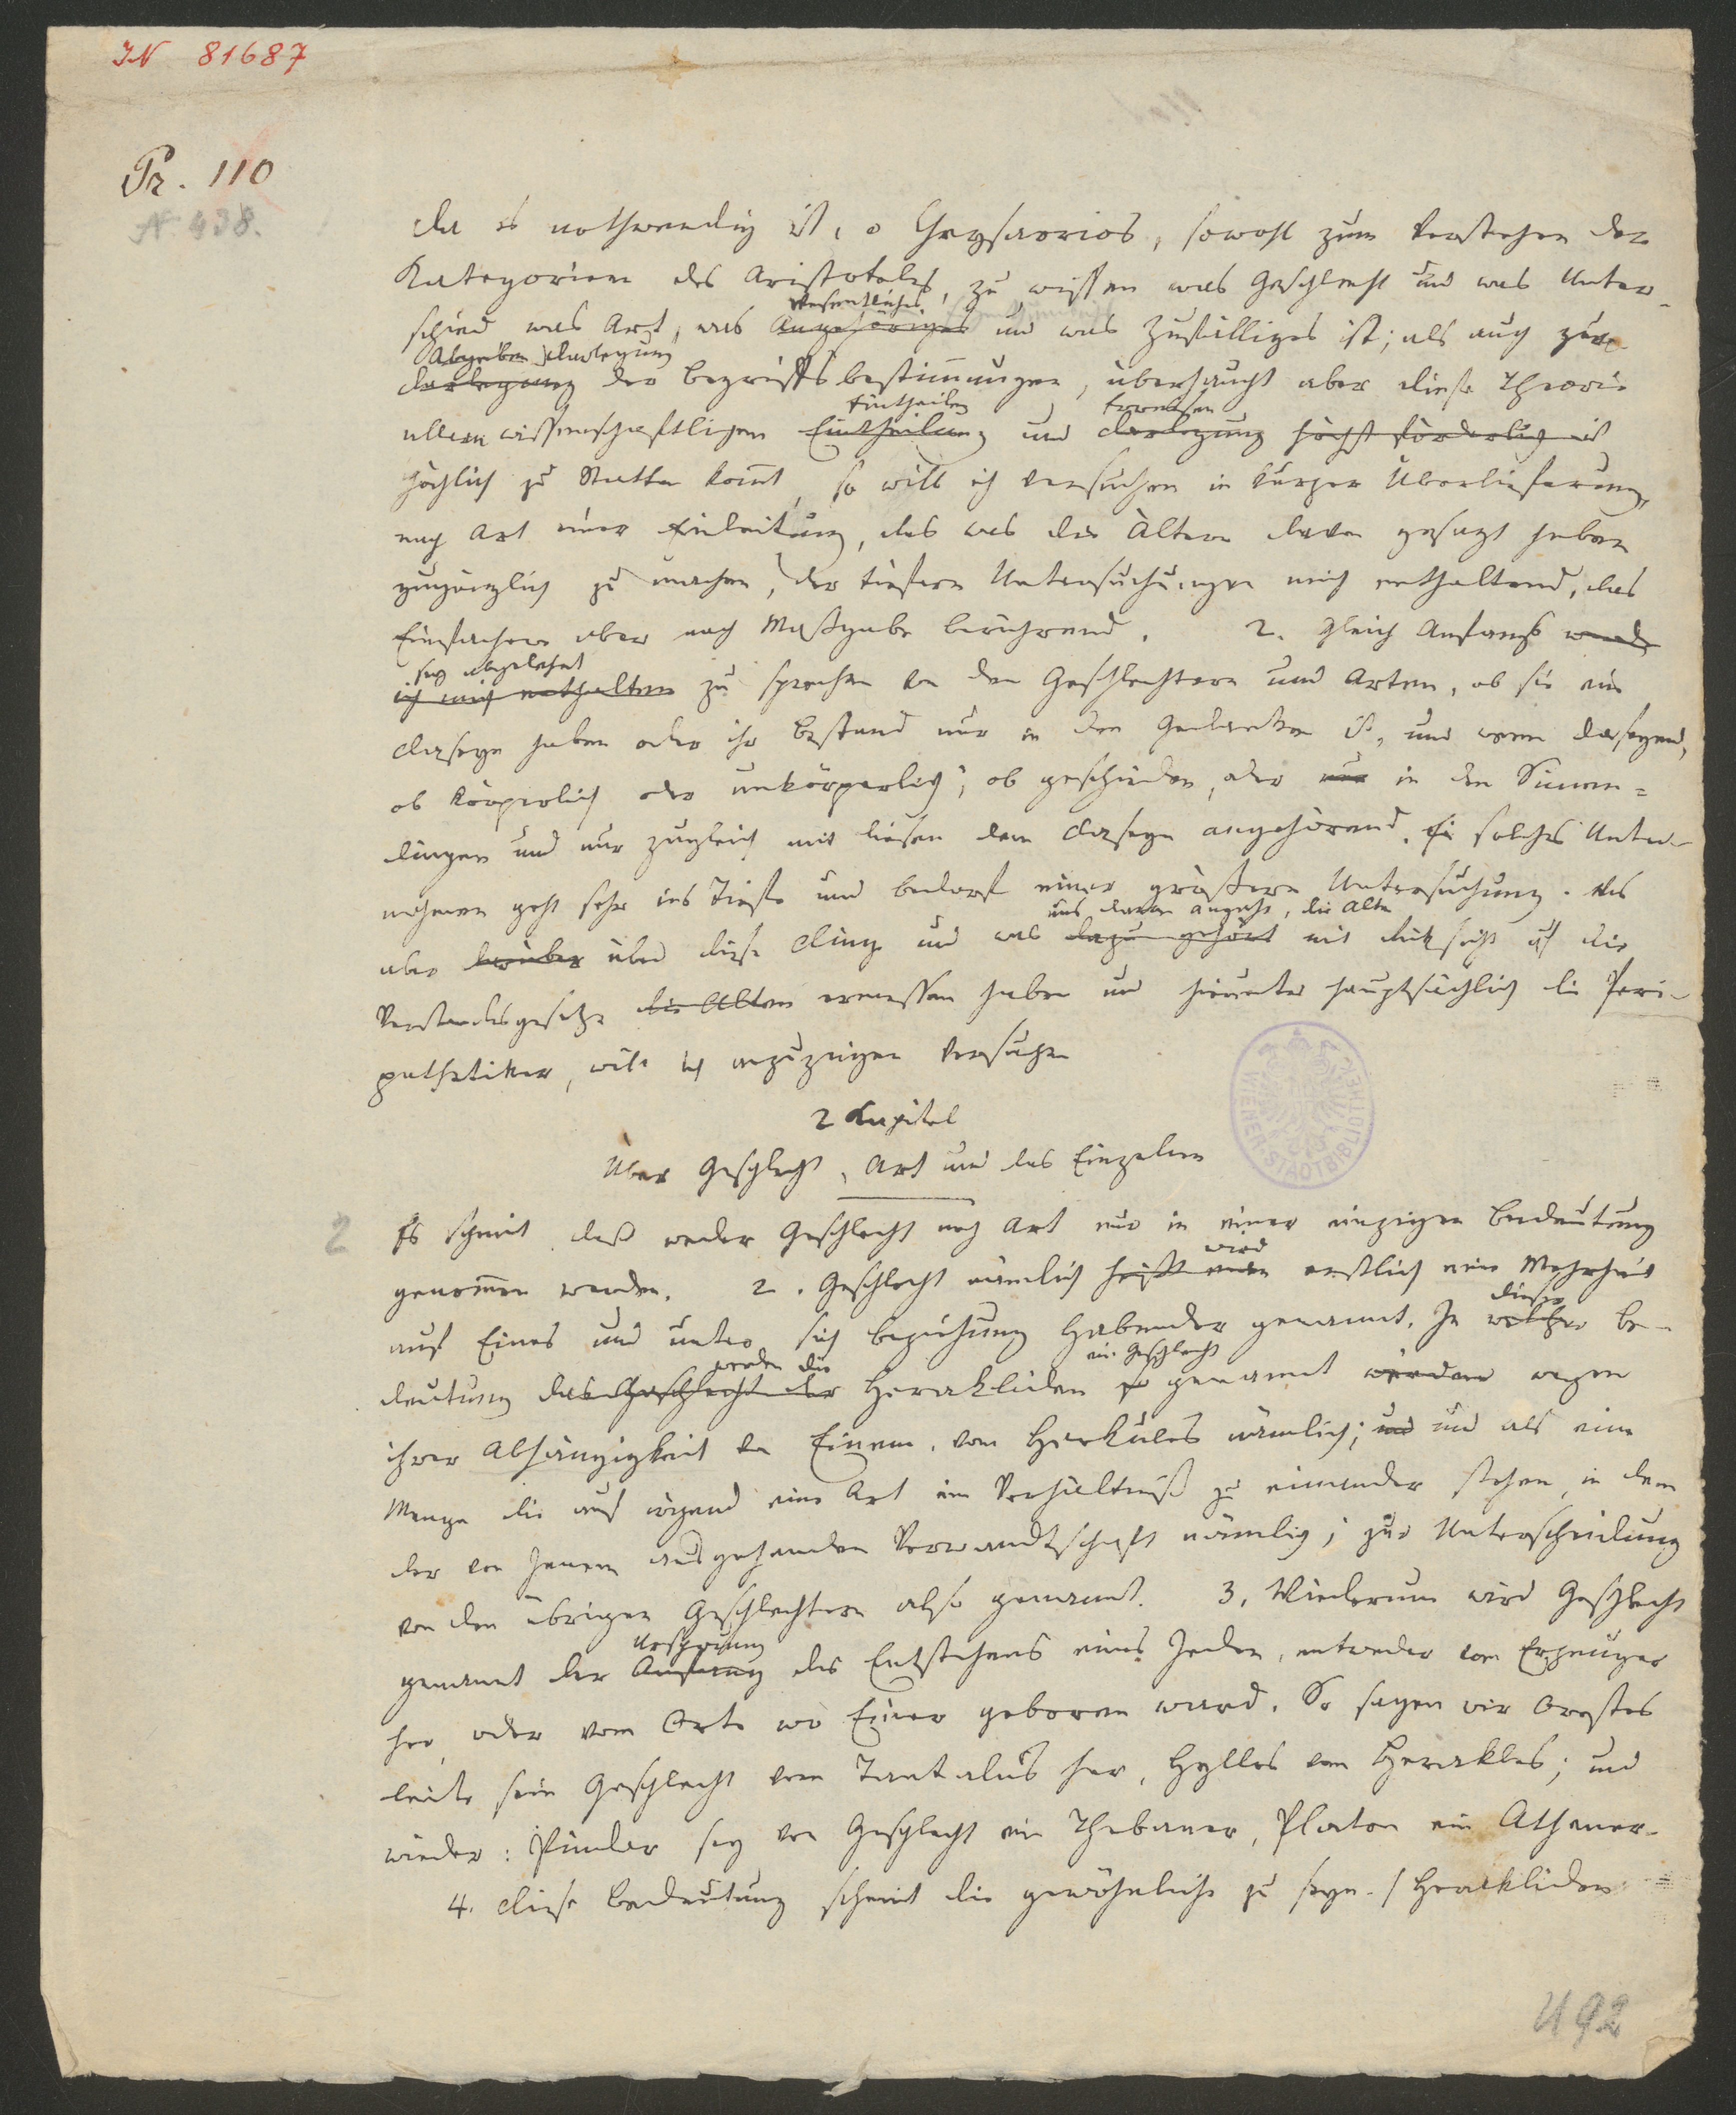 IN 81687
Pr. 110
N 438.
Da es nothwendig ist, o Chrysaorios, sowohl zum Verstehen der
Kategorien des Aristoteles, zu wissen was Geschlecht und was Unter-
wesentliches
schied was Art, was Angehöriges und was Zufälliges ist; als auch zur
Abgeben Darlegung
Darlegung der Begriffsbestimmungen, überhaupt aber diese Theorie
Eintheilen Erweisen
allem wissenschaftlichen Eintheilung und Darlegung höchst förderlich ist
höchlich zu Statten kommt, so will ich versuchen in kurzer Überlieferung,
nach Art einer Einleitung, das was die Ältern davon gesagt haben
zugänglich zu machen, der tiefern Untersuchungen mich enthaltend, das
Einfachere aber nach Maßgabe berührend. 2. Gleich Anfangs werde
sey abgelehnt
ich mich enthalten zu sprechen von den Geschlechtern und Arten, ob sie ein
Daseyn haben oder ihr Bestand nur in den Gedanken ist, und wenn daseyend,
ob körperlich oder unkörperlich; ob geschieden, oder nur in den Sinnen=
dingen und nur zugleich mit diesen dem Daseyn angehörend. Ein solches Unter-
nehmen geht sehr ins Tiefe und bedarf einer größern Untersuchung. Was
uns daran angeht, die Alten
aber darüber über diese Dinge und was dazu gehört mit Rücksicht auf die
Verstandesgesetze die Alten ermessen haben und hierunter hauptsächlich die Peri-
pathetiker, will ich anzuzeigen versuchen
2 Kapitel
Über Geschlecht, Art und das Einzelne
2 Es scheint daß weder Geschlecht noch Art nur in einer einzigen Bedeutung
wird
genommen werden. 2. Geschlecht nämlich heißt eine erstlich eine Mehrheit
dieser
auf Eines und unter sich Beziehung Habender genannt. In welcher Be-
werden die ein Geschlecht
deutung das Geschlecht der Herakliden so genannt werden wegen
ihrer Abhängigkeit von Einem, vom Herkules nämlich; und und als eine
Menge die auf irgend eine Art im Verhältniß zu einander stehen, in dem
der von Jenem ausgehenden Verwandtschaft nämlich; zur Unterscheidung
von den übrigen Geschlechtern also genannt. 3. Wiederum wird Geschlecht
Ursprung
genannt der Anfang des Entstehens eines Jeden, entweder vom Erzeuger
her, oder vom Orte wo Einer geboren ward. So sagen wir Orestes
leite sein Geschlecht vom Tantalus her, Hyllos vom Herakles; und
wieder: Pindar sey von Geschlecht ein Thebaner, Platon ein Athener.
4. Diese Bedeutung scheint die gewöhnliche zu seyn. / Herakliden
WIENER STADTBIBLIOTHEK
U 92